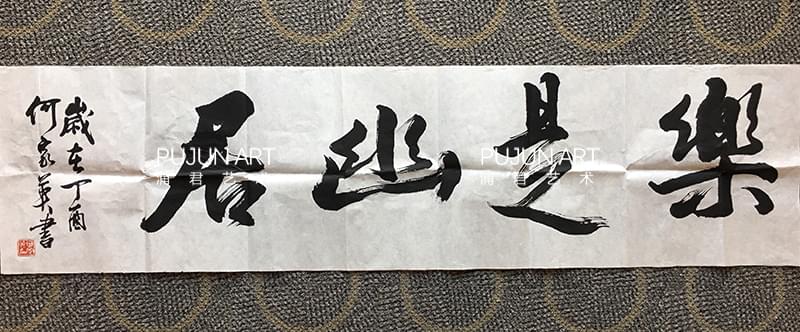 樂是幽居
歲在丁酉
何家英書
PUJUN ART
浦君艺术
PUJUN ART
浦君艺术